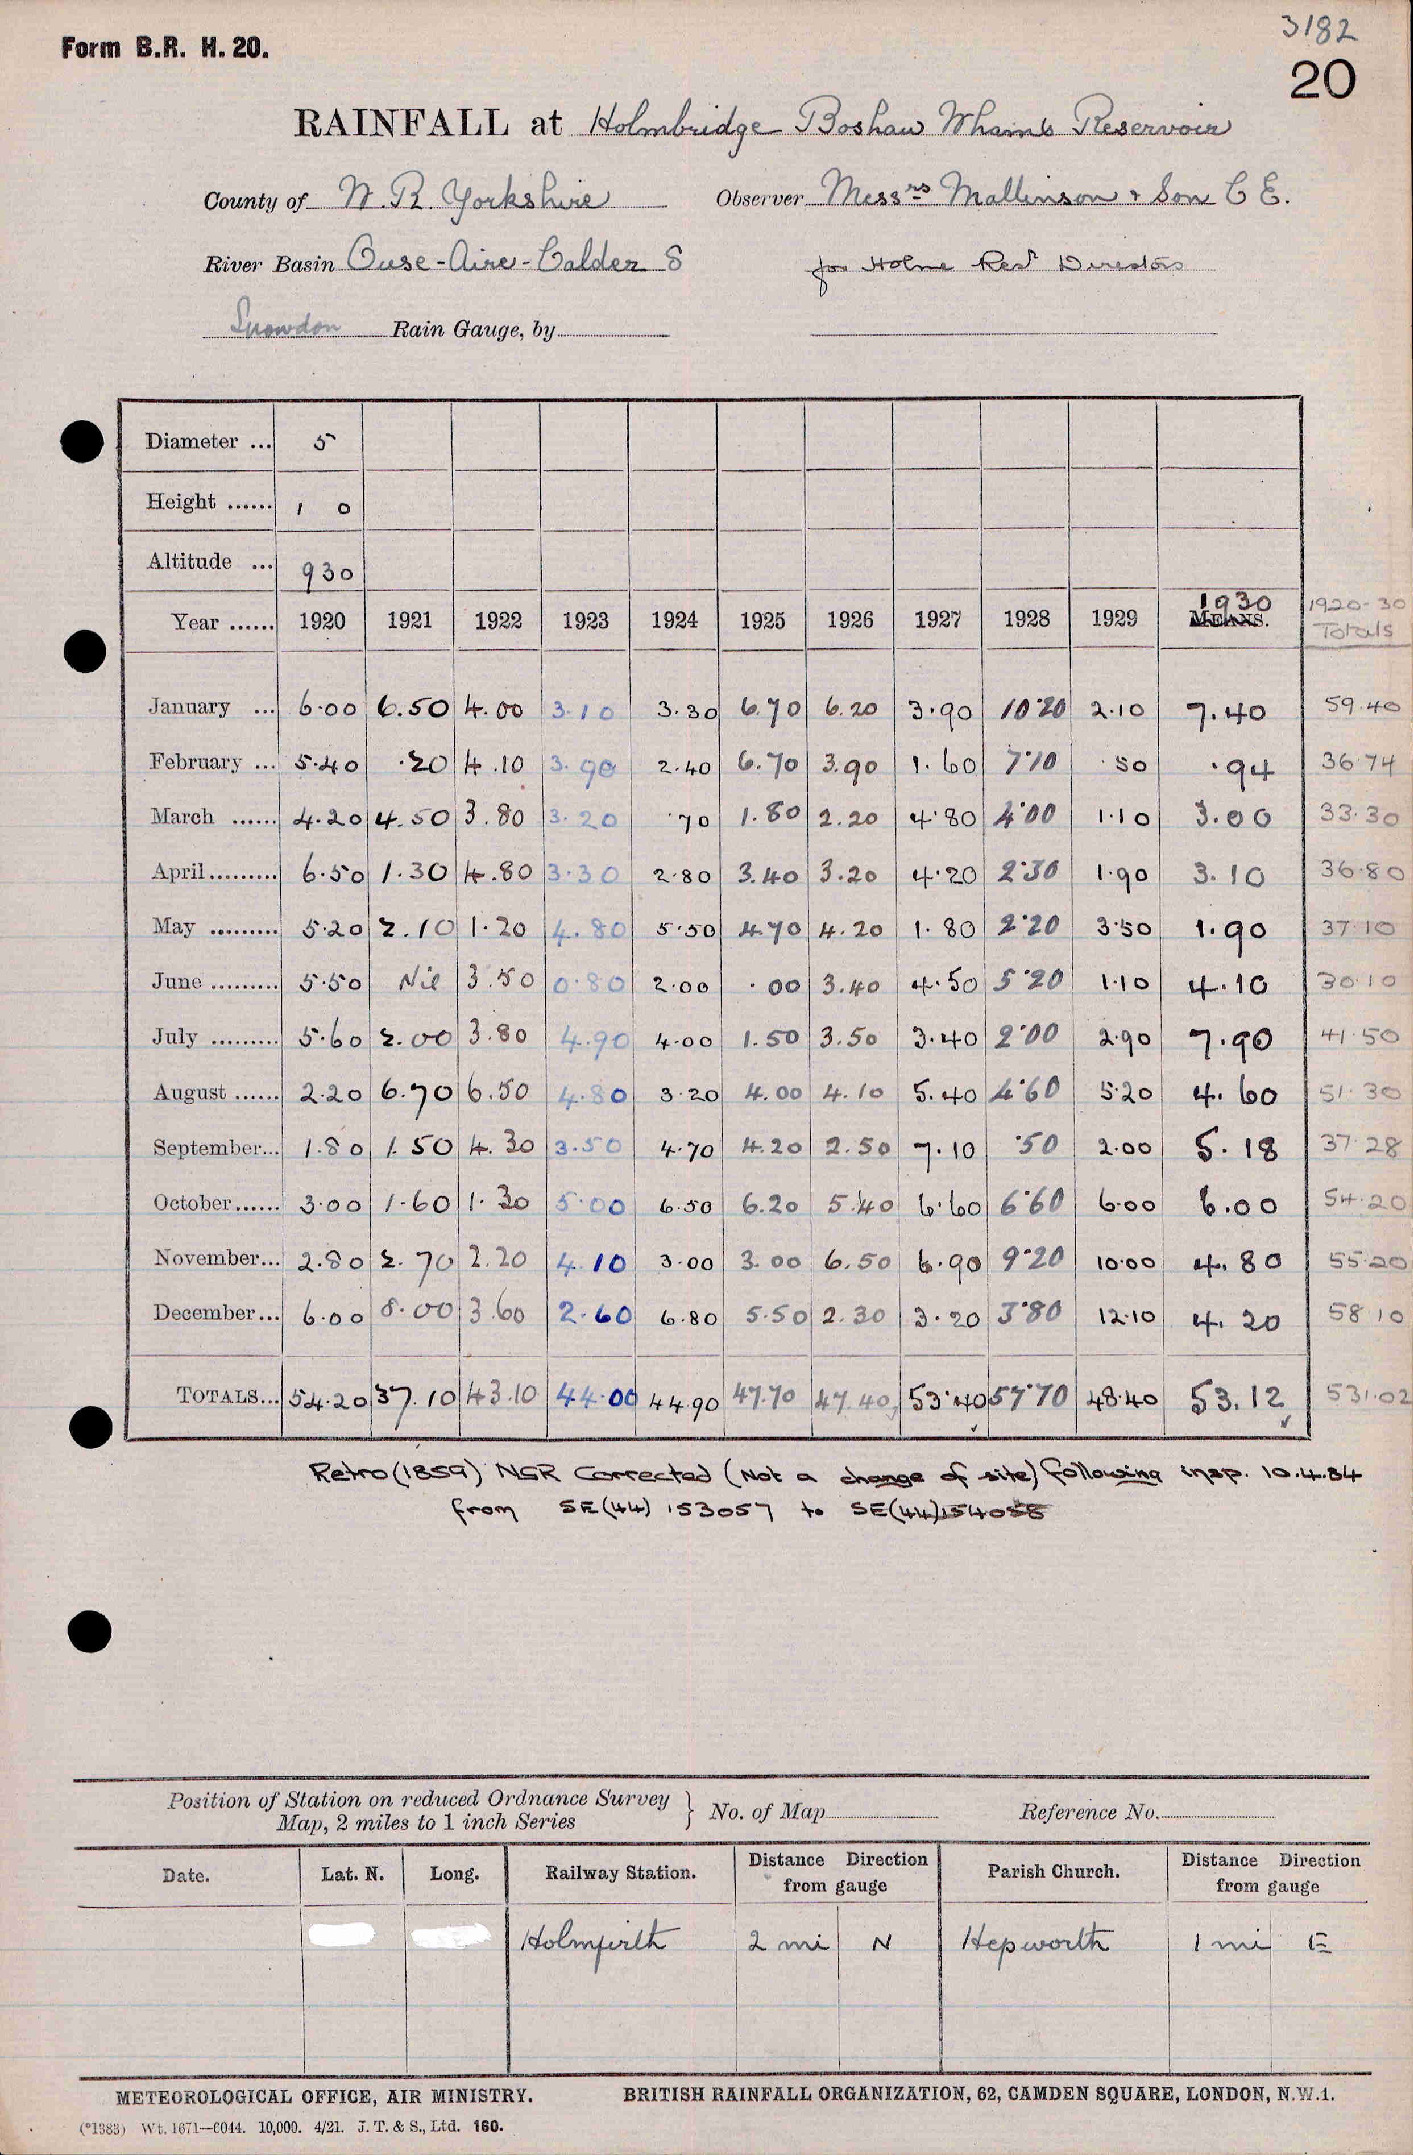 3182
Form B.R. H. 20.
20
RAINFALL at Holmbridge Boshaw Whams Reservoir
County of W. R. Yorkshire Observer Messrs Mallinson & Son C E.
River Basin Ouse-Aire-Calder S for Holme Resr Directors
Snowdon Rain Gauge, by
Diameter ... 5
Height ...... 1 0
Altitude ... 930
Year ...... 1920 1921 1922 1923 1924 1925 1926 1927 1928 1929 1930 MEANS. 1920-30 Totals
January ... 6.00 6.50 4.00 3.10 3.30 6.70 6.20 3.90 10.20 2.10 7.40 59.40
February ... 5.40 .20 4.10 3.90 2.40 6.70 3.90 1.60 7.10 .50 .94 36.74
March ...... 4.20 4.50 3.80 3.20 .70 1.80 2.20 4.80 4.00 1.10 3.00 33.30
April......... 6.50 1.30 4.80 3.30 2.80 3.40 3.20 4.20 2.30 1.90 3.10 36.80
May ......... 5.20 2.10 1.20 4.80 5.50 4.70 4.20 1.80 2.20 3.50 1.90 37.10
June ......... 5.50 Nil 3.50 0.80 2.00 .00 3.40 4.50 5.20 1.10 4.10 30.10
July ......... 5.60 2.00 3.80 4.90 4.00 1.50 3.50 3.40 2.00 2.90 7.90 41.50
August ...... 2.20 6.70 6.50 4.80 3.20 4.00 4.10 5.40 4.60 5.20 4.60 51.30
September... 1.80 1.50 4.30 3.50 4.70 4.20 2.50 7.10 .50 2.00 5.18 37.28
October...... 3.00 1.60 1.30 5.00 6.50 6.20 5.40 6.60 6.60 6.00 6.00 54.20
November... 2.80 2.70 2.20 4.10 3.00 3.00 6.50 6.90 9.20 10.00 4.80 55.20
December... 6.00 8.00 3.60 2.60 6.80 5.50 2.30 3.20 3.80 12.10 4.20 58.10
TOTALS... 54.20 37.10 43.10 44.00 44.90 47.70 47.40 53.40 57.70 48.40 53.12 531.02
Retro (1859) NGR Corrected (Not a change of site) following insp. 10.4.84
from SE(44) 153057 to SE(44)154058
Position of Station on reduced Ordnance Survey
Map, 2 miles to 1 inch Series
No. of Map Reference No.
Date. Lat. N. Long. Railway Station. Distance Direction from gauge Parish Church. Distance Direction from gauge
Holmfirth 2 mi N Hepworth 1 mi E
METEOROLOGICAL OFFICE, AIR MINISTRY. BRITISH RAINFALL ORGANIZATION, 62, CAMDEN SQUARE, LONDON, N.W.1.
(*1383) Wt. 1671—6044. 10,000. 4/21. J. T. & S., Ltd. 160.